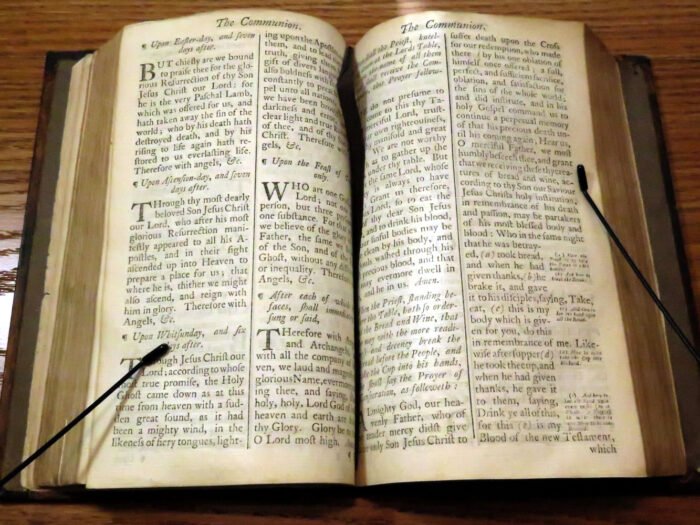 The Communion.
¶ Upon Eaſter-day, and ſeven
days after.
BUT chiefly are we bound
to praiſe thee for the glo-
rious Reſurrection of thy Son
Jeſus Chriſt our Lord; for
he is the very Paſchal Lamb,
which was offered for us, and
hath taken away the ſin of the
world; who by his death hath
deſtroyed death, and by his
riſing to life again hath re-
ſtored to us everlaſting life.
Therefore with angels, &c.
¶ Upon Aſcenſion-day, and ſeven
days after.
THrough thy moſt dearly
beloved Son Jeſus Chriſt
our Lord, who after his moſt
glorious Reſurrection mani-
feſtly appeared to all his A-
poſtles, and in their ſight
aſcended up into Heaven to
prepare a place for us; that
where he is, thither we might
alſo aſcend, and reign with
him in glory. Therefore with
Angels, &c.
¶ Upon Whitſunday, and ſix
days after.
Through Jeſus Chriſt our
Lord; according to whoſe
moſt true promiſe, the Holy
Ghoſt came down as at this
time from heaven with a ſud-
den great ſound, as it had
been a mighty wind, in the
likeneſs of fiery tongues, light-
ing upon the Apoſtles
them, and to lead
truth, giving them
gift of divers
alſo boldneſs with
conſtantly to preach
pel unto all nations
we have been
darkneſs and error
clear light and true
of thee, and of thy
gels, &c.
¶ Upon the Feaſt of
only.
WHO art one God
Lord; not
perſon, but three
one ſubſtance. For
we believe of the glory
Father, the ſame we
of the Son, and of the
Ghoſt, without any
or inequality. Therefore
Angels, &c.
¶ After each of which
faces, ſhall immediately
ſung or ſaid,
THerefore with Angels
and Archangels
with all the company
ven, we laud and magnify
glorious Name, evermore
ing thee, and ſaying,
holy, holy, Lord God of
heaven and earth are
thy Glory. Glory be
O Lord moſt high.
The Communion.
ſhall the Prieſt, kneel-
the Lords Table,
of all them
receive the Com-
Prayer follow-
do not preſume to
to this thy Ta-
Lord, truſt-
own righteouſneſs,
manifold and great
We are not worthy
as to gather up the
under thy Table. But
the ſame Lord, whoſe
is always to have
Grant us therefore,
Lord, ſo to eat the
thy dear Son Jeſus
and to drink his blood,
our ſinful bodies may be
clean by his body, and
ſouls waſhed through his
precious blood, and that
may evermore dwell in
he in us. Amen.
the Prieſt, ſtanding be-
Table, hath ſo order-
the Bread and Wine, that
may with the more readi-
and decency break the
before the People, and
the Cup into his hands,
ſhall ſay the Prayer of
Conſecration, as followeth:
Almighty God, our hea-
venly Father, who of
tender mercy didſt give
thine only Son Jeſus Chriſt to
ſuffer death upon the Croſs
for our redemption, who made
there by his one oblation of
himſelf once offered; a full,
perfect, and ſufficient ſacrifice,
oblation, and ſatisfaction for
the ſins of the whole world;
and did inſtitute, and in his
holy Goſpel command us to
continue a perpetual memory
of that his precious death un-
til his coming again, Hear us,
O merciful Father, we moſt
humbly beſeech thee, and grant
that we receiving theſe thy crea-
tures of bread and wine, ac-
cording to thy Son our Saviour
Jeſus Chriſts holy inſtitution,
in remembrance of his death
and paſſion, may be partakers
of his moſt bleſſed body and
blood: Who in the ſame night
that he was betray-
ed, (a) took bread,
and when he had
given thanks, (b) he
brake it, and gave
it to his diſciples, ſaying, Take,
eat, (c) this is my
body which is giv-
en for you, do this
in remembrance of me. Like-
wiſe after ſupper (d)
he took the cup, and
when he had given
thanks, he gave it
to them, ſaying,
Drink ye all of this,
for this (e) is my
Blood of the new Teſtament,
which